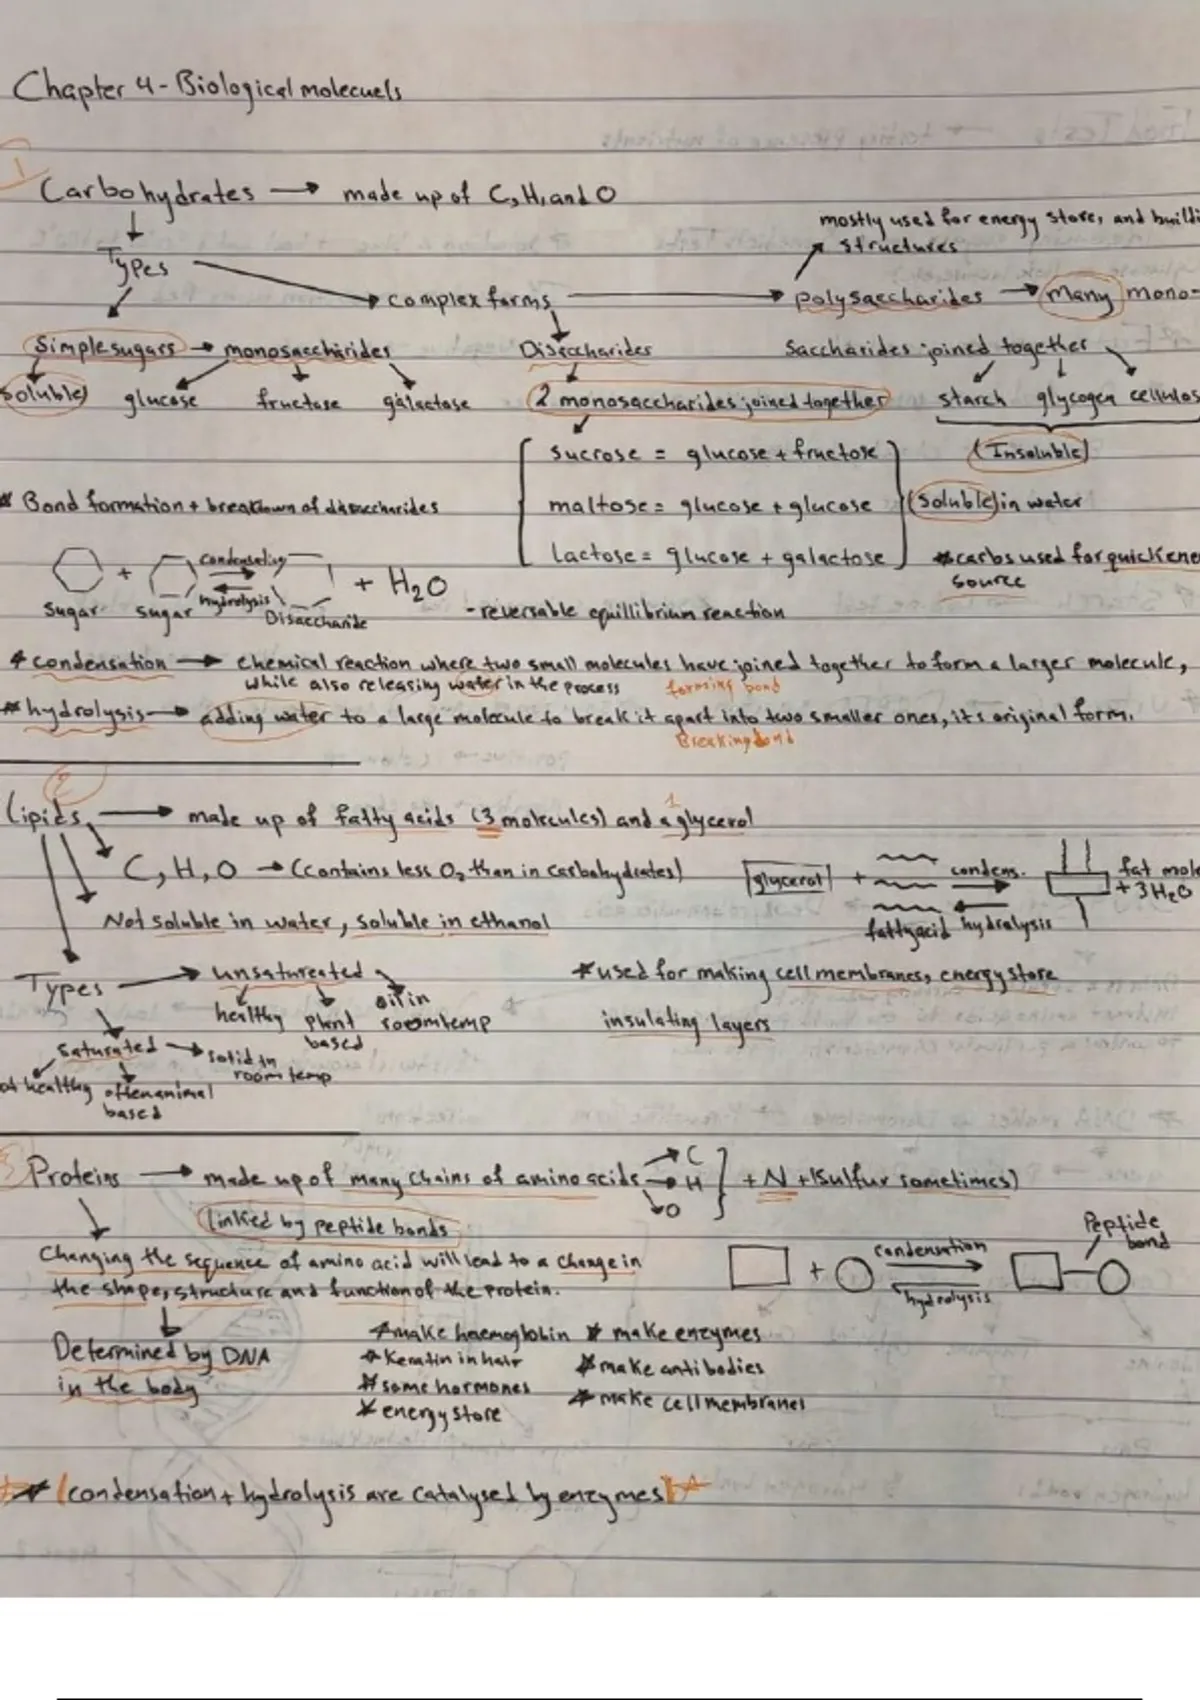 Chapter 4 - Biological molecuels
1
Carbohydrates → made up of C, H, and O
mostly used for energy store, and buildi
structures
Types
complex forms → polysaccharides → Many mono-
Simple sugars → monosaccharides
Disaccharides
Saccharides joined together
Soluble
glucose fructose galactose
2 monosaccharides joined together
starch glycogen cellulos
sucrose = glucose + fructose
(Insoluble)
* Bond formation + breakdown of disaccharides
maltose = glucose + glucose
(Soluble) in water
lactose = glucose + galactose
* carbs used for quick ene
source
+ + H2O
hydrolysis
sugar sugar Disaccharide
- reversable equillibrium reaction
* condensation → chemical reaction where two small molecules have joined together to form a larger molecule,
while also releasing water in the process forming bond
* hydrolysis → adding water to a large molecule to break it apart into two smaller ones, it's original form.
Breaking bond
2
Lipids → made up of fatty acids (3 molecules) and a glycerol
1
C, H, O → (contains less O2 than in carbohydrates)
glycerol + condens. fat mole
+ 3H2O
fatty acid hydrolysis
Not soluble in water, soluble in ethanol
Types → unsatureated
* used for making cell membranes, energy store
healthy plant based oil in room temp
insulating layers
saturated → solid in room temp
ot healthy often animal based
3
Proteins → made up of many chains of amino acids → C H O } + N + (sulfur sometimes)
(linked by peptide bonds
Changing the sequence of amino acid will lead to a change in
the shape, structure and function of the protein.
+ condensation Peptide bond
hydrolysis
Determined by DNA
in the body
* make haemoglobin * make enzymes
* Keratin in hair * make antibodies
* some hormones * make cell membranes
* energy store
* (condensation + hydrolysis are catalysed by enzymes) *